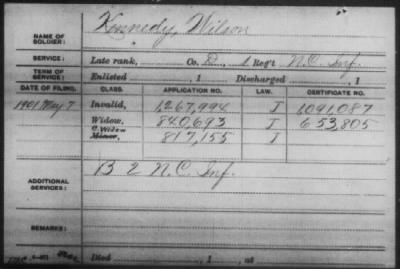 NAME OF SOLDIER: Kennedy, Wilson
SERVICE: Late rank, Co. D, 1 Reg't N.C. Inf.
TERM OF SERVICE: Enlisted , 1 Discharged , 1
DATE OF FILING. CLASS. APPLICATION NO. LAW. CERTIFICATE NO.
1901 May 7 Invalid, 1,267,994 J 1,091,087
Widow, 840,693 J 653,805
C Widow Minor, 817,155 J
ADDITIONAL SERVICES: B 2 N.C. Inf.
REMARKS:
Died , 1 , at